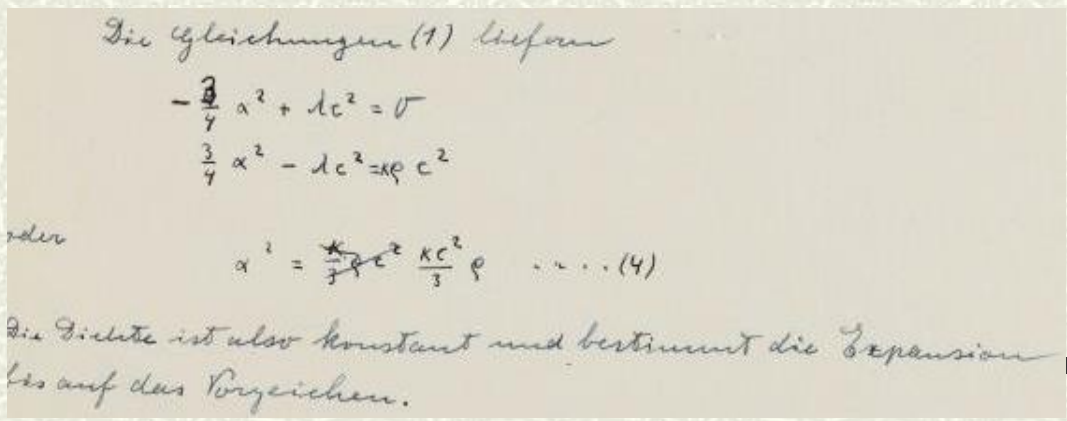 Die Gleichungen (1) liefern
- 3/4 α² + λc² = 0
3/4 α² - λc² = κρ c²
oder
α² = κc²/3 ρ . . . . (4)
Die Dichte ist also konstant und bestimmt die Expansion
bis auf das Vorzeichen.